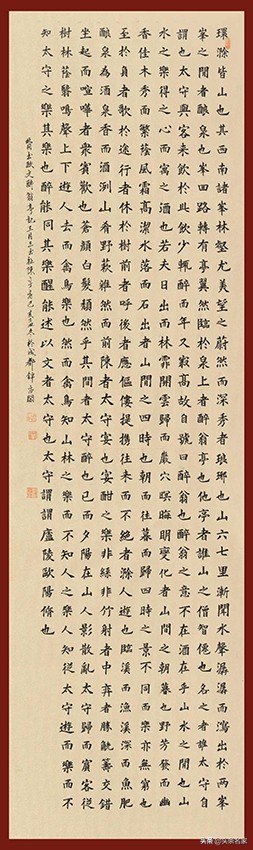 環滁皆山也其西南諸峯林壑尤美望之蔚然而深秀者琅瑘也山六七里漸聞水聲潺潺而瀉出於兩峯
峯之間者釀泉也峯回路轉有亭翼然臨於泉上者醉翁亭也作亭者誰山之僧智僊也名之者誰太守自
謂也太守與客來飲於此飲少輒醉而年又最高故自號曰醉翁也醉翁之意不在酒在乎山水之間也山
水之樂得之心而寓之酒也若夫日出而林霏開雲歸而巖穴暝晦明變化者山間之朝暮也野芳發而幽
香佳木秀而繁蔭風霜高潔水落而石出者山間之四時也朝而往暮而歸四時之景不同而樂亦無窮也
至於負者歌於途行者休於樹前者呼後者應傴僂提攜往來而不絕者滁人遊也臨溪而漁溪深而魚肥
釀泉為酒泉香而酒洌山肴野蔌雜然而前陳者太守宴也宴酣之樂非絲非竹射者中弈者勝觥籌交錯
坐起而喧嘩者衆賓歡也蒼顏白髮頹然乎其間者太守醉也已而夕陽在山人影散亂太守歸而賓客從
樹林蔭翳鳴聲上下遊人去而禽鳥樂也然而禽鳥知山林之樂而不知人之樂人知從太守遊而樂而不
知太守之樂其樂也醉能同其樂醒能述以文者太守也太守謂謂廬陵歐陽脩也
頭條